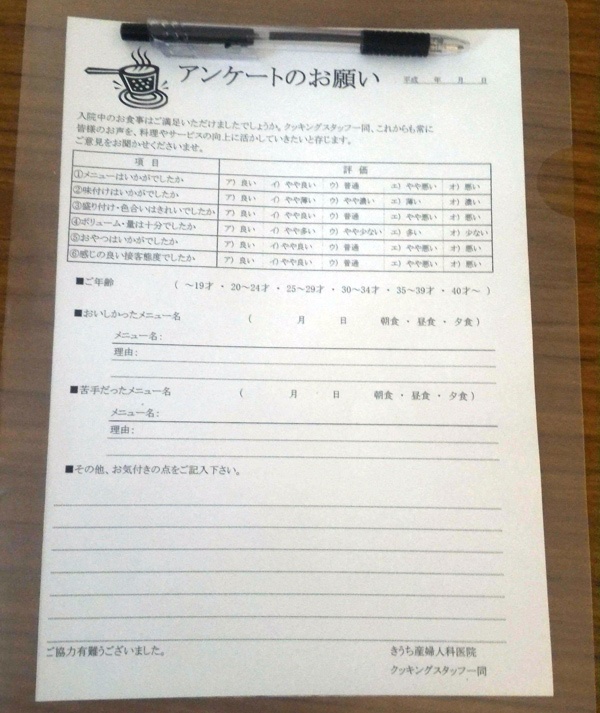 アンケートのお願い 平成 年 月 日
入院中のお食事はご満足いただけましたでしょうか。クッキングスタッフ一同、これからも常に
皆様のお声を、料理やサービスの向上に活かしていきたいと存じます。
ご意見をお聞かせくださいませ。
項 目 評 価
①メニューはいかがでしたか ア）良い イ）やや良い ウ）普通 エ）やや悪い オ）悪い
②味付けはいかがでしたか ア）良い イ）やや薄い ウ）やや濃い エ）薄い オ）濃い
③盛り付け・色合いはきれいでしたか ア）良い イ）やや良い ウ）普通 エ）やや悪い オ）悪い
④ボリューム・量は十分でしたか ア）良い イ）やや多い ウ）やや少ない エ）多い オ）少ない
⑤おやつはいかがでしたか ア）良い イ）やや良い ウ）普通 エ）やや悪い オ）悪い
⑥感じの良い接客態度でしたか ア）良い イ）やや良い ウ）普通 エ）やや悪い オ）悪い
■ご年齢 （ ～19才 ・ 20～24才 ・ 25～29才 ・ 30～34才 ・ 35～39才 ・ 40才～ ）
■おいしかったメニュー名 （ 月 日 朝食 ・ 昼食 ・ 夕食 ）
メニュー名：
理由：
■苦手だったメニュー名 （ 月 日 朝食 ・ 昼食 ・ 夕食 ）
メニュー名：
理由：
■その他、お気付きの点をご記入下さい。
ご協力有難うございました。 きうち産婦人科医院
クッキングスタッフ一同